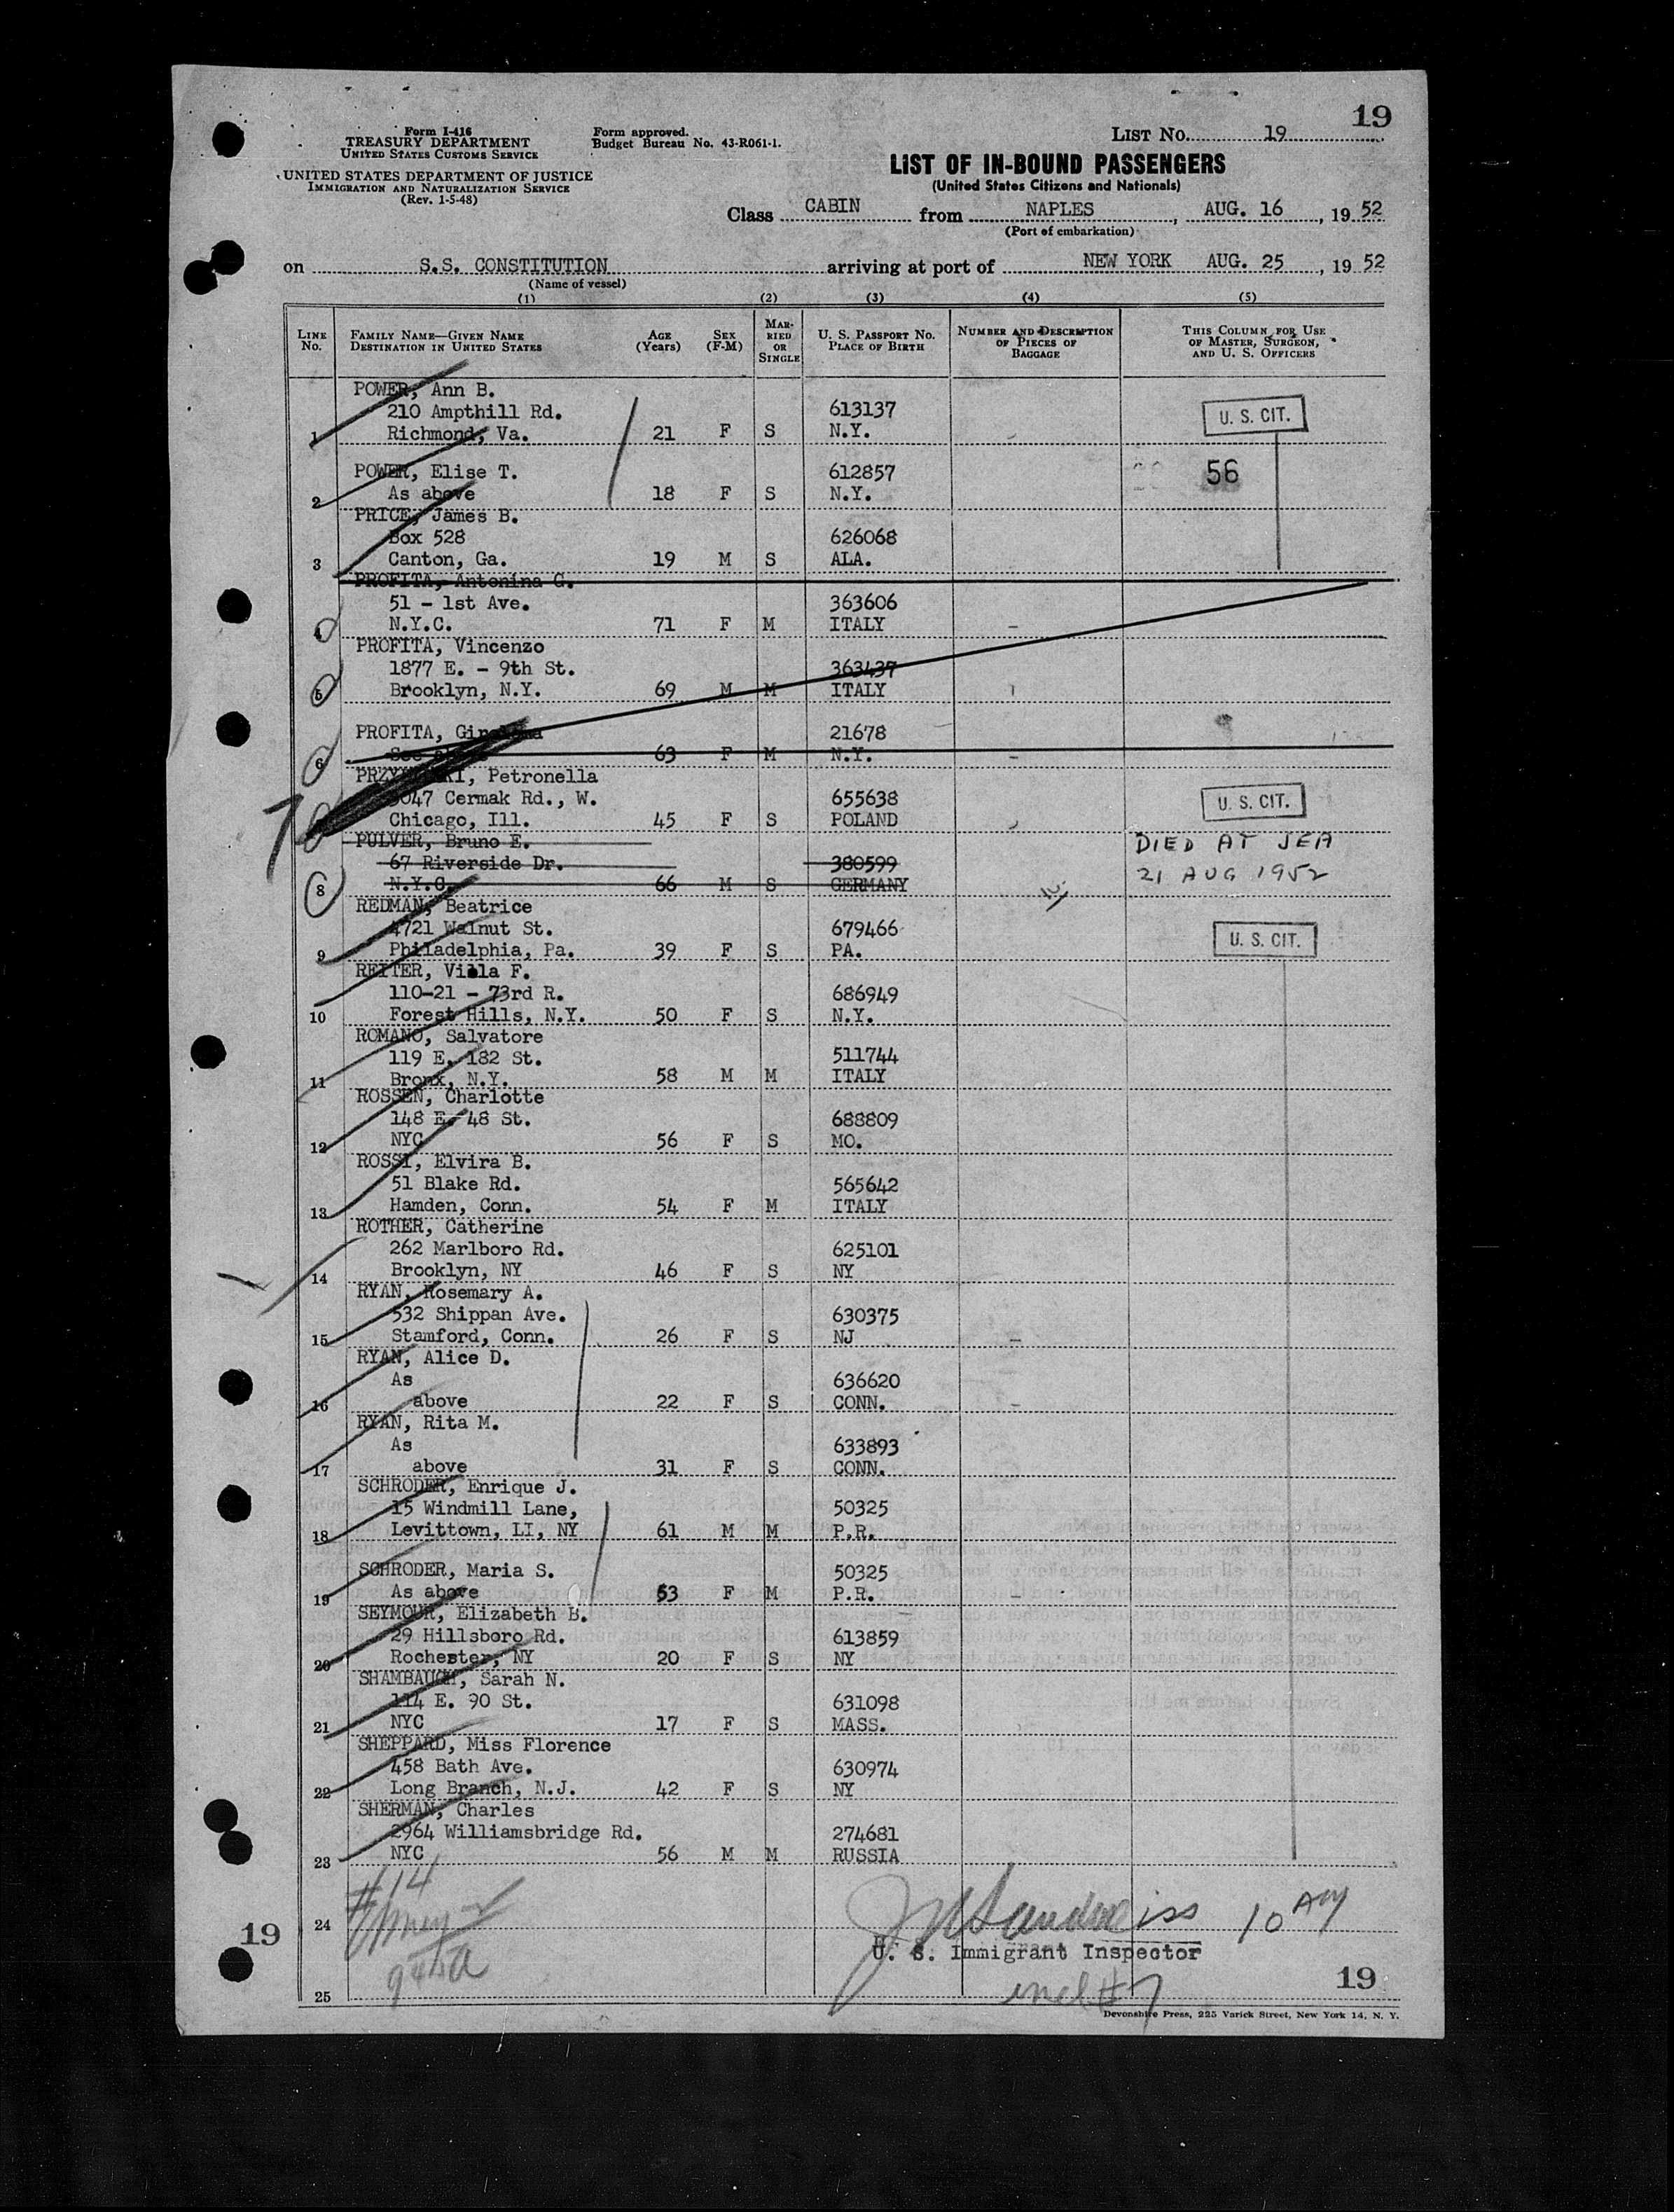 19
Form I-416
TREASURY DEPARTMENT
UNITED STATES CUSTOMS SERVICE
UNITED STATES DEPARTMENT OF JUSTICE
IMMIGRATION AND NATURALIZATION SERVICE
(Rev. 1-5-48)
Form approved.
Budget Bureau No. 43-R061-1.
LIST No. 19
LIST OF IN-BOUND PASSENGERS
(United States Citizens and Nationals)
Class CABIN from NAPLES, AUG. 16, 19 52
(Port of embarkation)
on S.S. CONSTITUTION arriving at port of NEW YORK AUG. 25, 19 52
(Name of vessel)
(1) (2) (3) (4) (5)
LINE No. FAMILY NAME—GIVEN NAME DESTINATION IN UNITED STATES AGE (Years) SEX (F-M) MARRIED OR SINGLE U. S. PASSPORT No. PLACE OF BIRTH NUMBER AND DESCRIPTION OF PIECES OF BAGGAGE THIS COLUMN FOR USE OF MASTER, SURGEON, AND U. S. OFFICERS
POWER, Ann B.
210 Ampthill Rd. 613137 U. S. CIT.
1 Richmond, Va. 21 F S N.Y.
POWER, Elise T. 612857 56
2 As above 18 F S N.Y.
PRICE, James B.
Box 528 626068
3 Canton, Ga. 19 M S ALA.
PROFITA, Antonina G.
51 - 1st Ave. 363606
4 N.Y.C. 71 F M ITALY
PROFITA, Vincenzo
1877 E. - 9th St. 363437
5 Brooklyn, N.Y. 69 M M ITALY
PROFITA, 21678
6 63 F M N.Y.
Petronella
7 Cermak Rd., W. 655638 U. S. CIT.
Chicago, Ill. 45 F S POLAND
PULVER, Bruno E. DIED AT SEA
67 Riverside Dr. 380599 21 AUG 1952
8 N.Y.C. 66 M S GERMANY
REDMAN, Beatrice
4721 Walnut St. 679466 U. S. CIT.
9 Philadelphia, Pa. 39 F S PA.
REITER, Villa F.
110-21 - 73rd R. 686949
10 Forest Hills, N.Y. 50 F S N.Y.
ROMANO, Salvatore
119 E. 182 St. 511744
11 Bronx, N.Y. 58 M M ITALY
ROSSEN, Charlotte
148 E. 48 St. 688809
12 NYC 56 F S MO.
ROSSI, Elvira B.
51 Blake Rd. 565642
13 Hamden, Conn. 54 F M ITALY
ROTHER, Catherine
262 Marlboro Rd. 625101
14 Brooklyn, NY 46 F S NY
RYAN, Rosemary A.
532 Shippan Ave. 630375
15 Stamford, Conn. 26 F S NJ
RYAN, Alice D.
As 636620
16 above 22 F S CONN.
RYAN, Rita M.
As 633893
17 above 31 F S CONN.
SCHRODER, Enrique J.
15 Windmill Lane, 50325
18 Levittown, LI, NY 61 M M P.R.
SCHRODER, Maria S. 50325
19 As above 53 F M P.R.
SEYMOUR, Elizabeth B.
29 Hillsboro Rd. 613859
20 Rochester, NY 20 F S NY
SHAMBAUGH, Sarah N.
114 E. 90 St. 631098
21 NYC 17 F S MASS.
SHEPPARD, Miss Florence
458 Bath Ave. 630974
22 Long Branch, N.J. 42 F S NY
SHERMAN, Charles
2964 Williamsbridge Rd. 274681
23 NYC 56 M M RUSSIA
#14
19 24 10 AM
U. S. Immigrant Inspector
25 #7 19
Devonshire Press, 225 Varick Street, New York 14, N. Y.